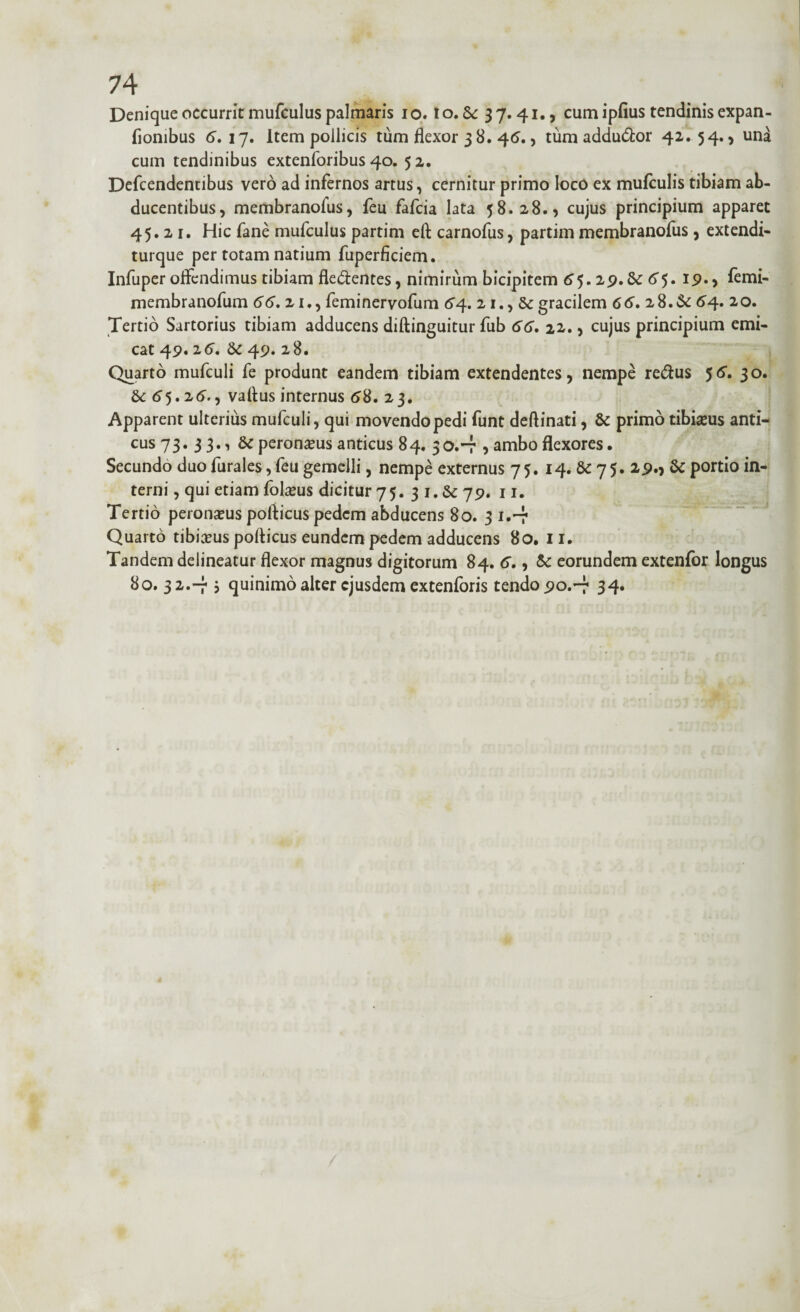 74
Denique occurrit muſculus palmaris 10. 10. & 37. 41., cum ipſius tendinis expan-
ſionibus 6. 17. Item pollicis tùm flexor 38. 46., tùm adductor 42. 54., unà
cum tendinibus extenſoribus 40. 52.
Deſcendentibus verò ad infernos artus, cernitur primo locò ex muſculis tibiam ab-
ducentibus, membranoſus, ſeu faſcia lata 58. 28., cujus principium apparet
45. 21. Hic ſanè muſculus partim eſt carnoſus, partim membranoſus, extendi-
turque per totam natium ſuperficiem.
Inſuper offendimus tibiam flectentes, nimirùm bicipitem 65. 29. & 65. 19., ſemi-
membranoſum 66. 21., ſeminervoſum 64. 21., & gracilem 66. 28. & 64. 20.
Tertiò Sartorius tibiam adducens diſtinguitur ſub 66. 22., cujus principium emi-
cat 49. 26. & 49. 28.
Quartò muſculi ſe produnt eandem tibiam extendentes, nempè rectus 56. 30.
& 65. 26., vaſtus internus 68. 23.
Apparent ulteriùs muſculi, qui movendo pedi ſunt deſtinati, & primò tibiæus anti-
cus 73. 33., & peronæus anticus 84. 30.-⁒ , ambo flexores.
Secundò duo ſurales, ſeu gemelli, nempè externus 75. 14. & 75. 29., & portio in-
terni, qui etiam ſolæus dicitur 75. 31. & 79. 11.
Tertiò peronæus poſticus pedem abducens 80. 31.-⁒
Quartò tibiæus poſticus eundem pedem adducens 80. 11.
Tandem delineatur flexor magnus digitorum 84. 6., & eorundem extenſor longus
80. 32.-⁒ ; quinimò alter ejusdem extenſoris tendo 90.-⁒ 34.